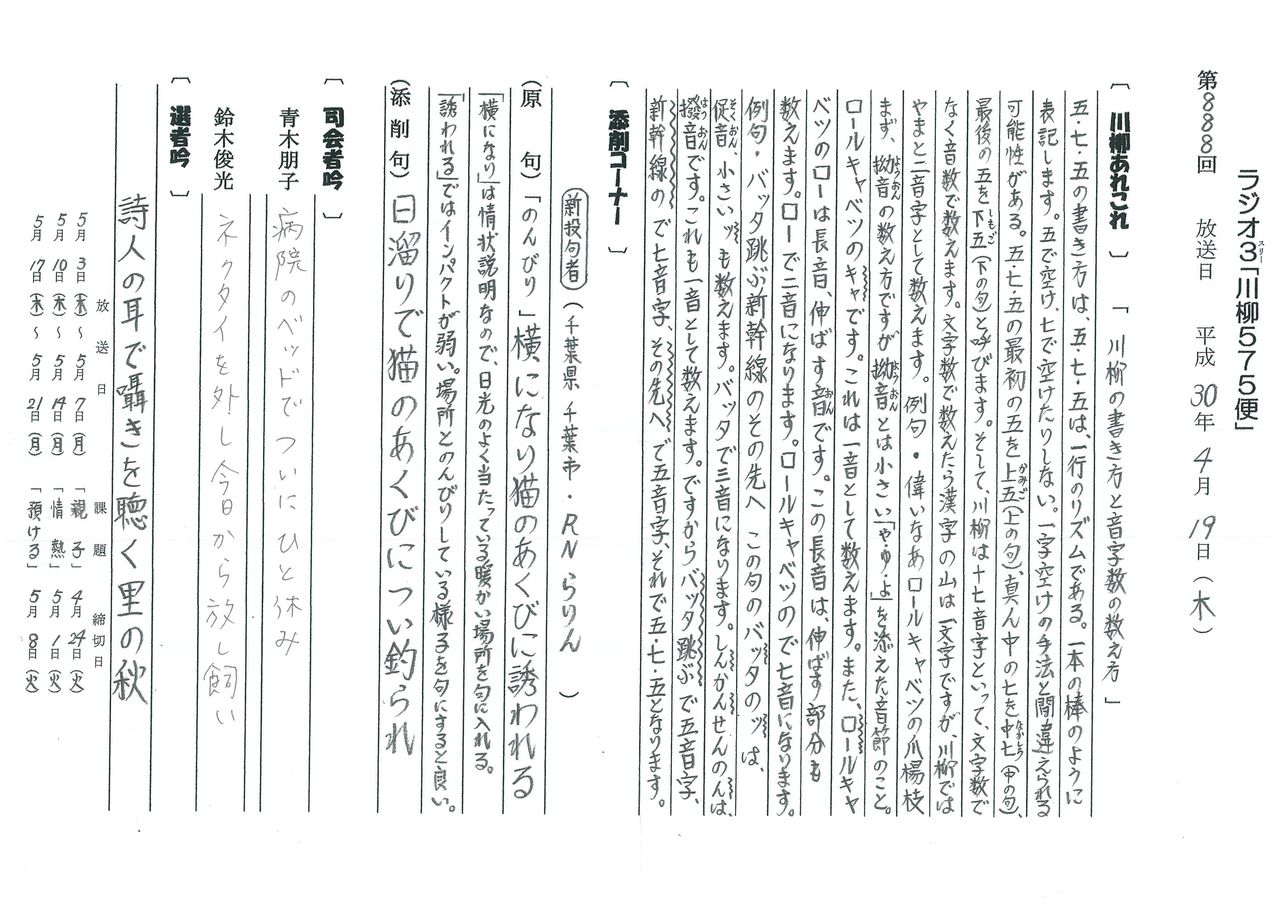 ラジオ3「川柳575便」
スリー
第888回 放送日 平成30年4月19日(木)
〔川柳あれこれ〕 「川柳の書き方と音字数の数え方」
五・七・五の書き方は、五・七・五は、一行のリズムである。一本の棒のように
表記します。五で空け、七で空けたりしない。一字空けの手法と間違えられる
可能性がある。五・七・五の最初の五を上五(かみご)(上の句)、真ん中の七を中七(なかしち)(中の句)、
最後の五を下五(しもご)(下の句)と呼びます。そして、川柳は十七音字といって、文字数で
なく音数で数えます。文字数で数えたら漢字の山は一文字ですが、川柳では
やまと二音字として数えます。例句・偉いなあロールキャベツの爪楊枝
まず、拗音(ようおん)の数え方ですが拗音(ようおん)とは小さい「ゃ・ゅ・ょ」を添えた音節のこと。
ロールキャベツのキャです。これは一音として数えます。また、ロールキャ
ベツのローは長音、伸ばす音(おん)です。この長音は、伸ばす部分も
数えます。ローで二音になります。ロールキャベツので七音になります。
例句・バッタ跳ぶ新幹線のその先へ この句のバッタのッは、
促音(そくおん)、小さいッも数えます。バッタで三音になります。しんかんせんのんは、
撥音(はつおん)です。これも一音として数えます。ですから、バッタ跳ぶで五音字、
新幹線ので七音字、その先へで五音字、それで五・七・五となります。
〔添削コーナー〕
新投句者 (千葉県千葉市・RNらりん)
(原 句)「のんびり」横になり猫のあくびに誘われる
「横になり」は情状説明なので、日光のよく当たっている暖かい場所を句に入れる。
「誘われる」ではインパクトが弱い。場所とのんびりしている様子を句にすると良い。
(添削句)日溜りで猫のあくびについ釣られ
〔司会者吟〕
青木朋子 病院のベッドでついにひと休み
鈴木俊光 ネクタイを外し今日から放し飼い
〔選者吟〕
詩人の耳で囁きを聴く里の秋
放送日 課題 締切日
5月3日(木)~5月7日(月) 「親子」 4月24日(火)
5月10日(木)~5月14日(月) 「情熱」 5月1日(火)
5月17日(木)~5月21日(月) 「預ける」 5月8日(火)